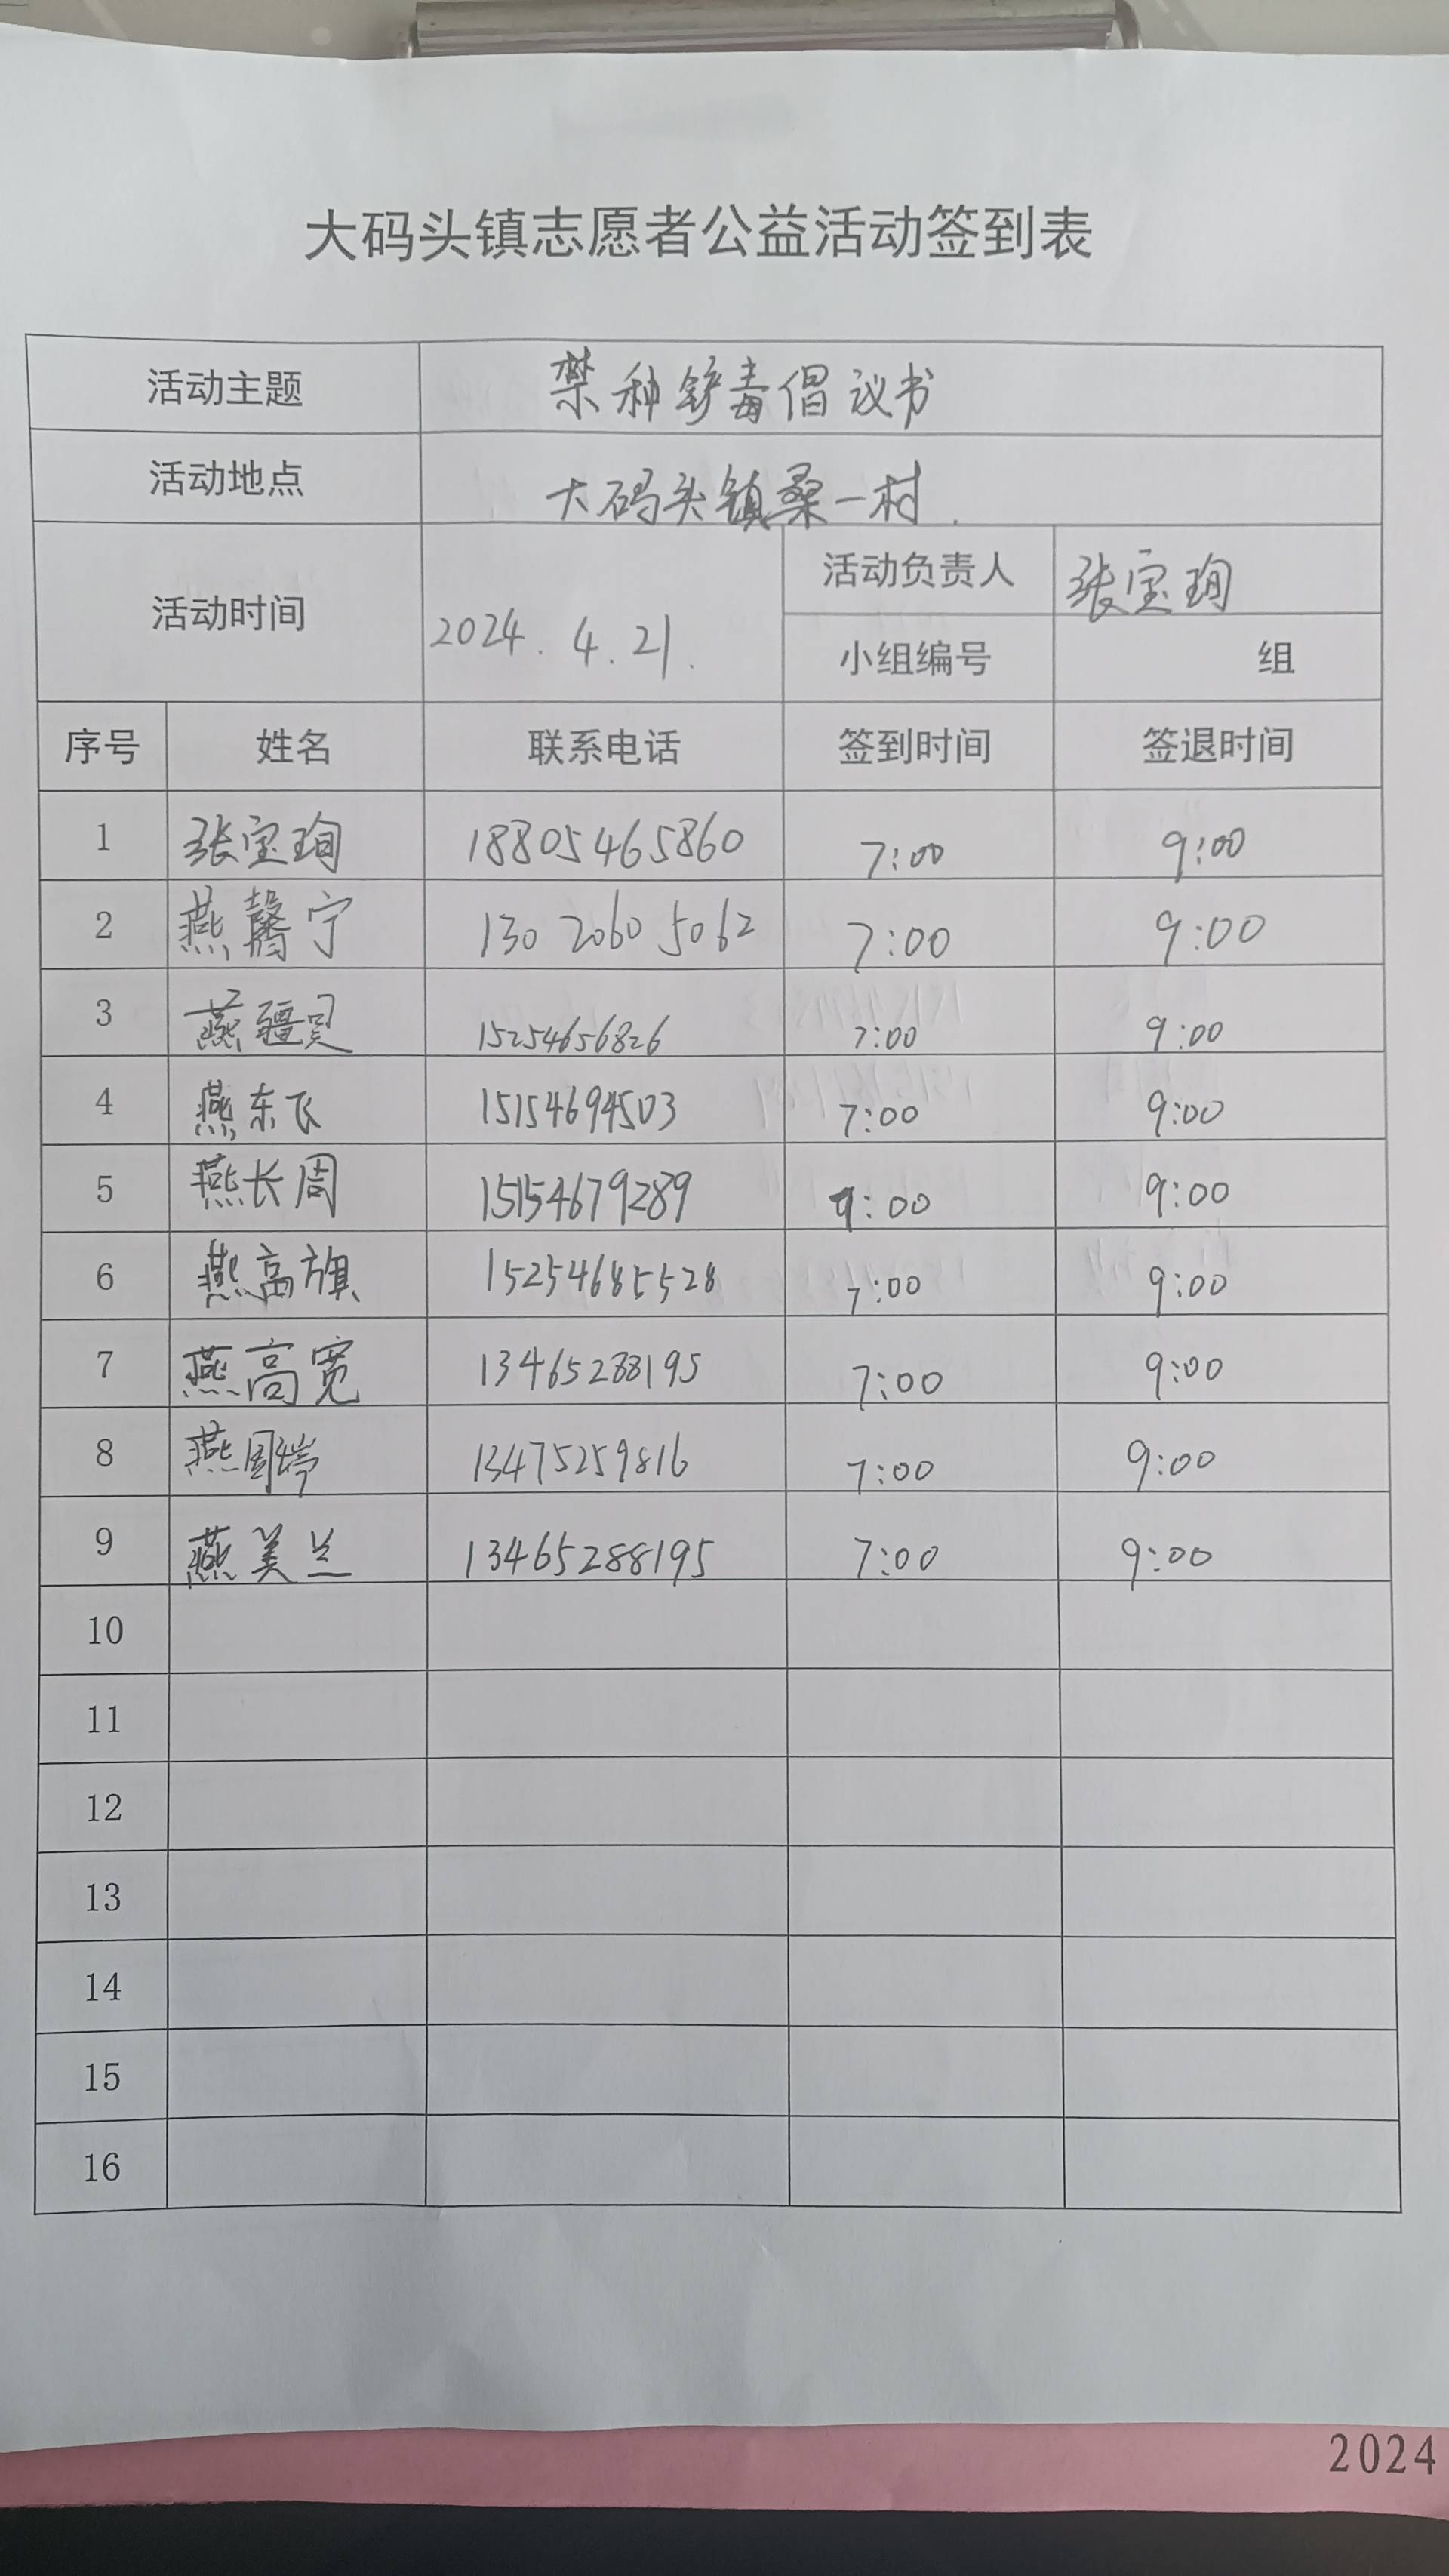 大码头镇志愿者公益活动签到表
活动主题 禁种铲毒倡议书
活动地点 大码头镇桑一村
活动时间 2024.4.21. 活动负责人 张宝珣
小组编号 组
序号 姓名 联系电话 签到时间 签退时间
1 张宝珣 18805465860 7:00 9:00
2 燕馨宁 130 2060 5062 7:00 9:00
3 燕疆 15254656826 7:00 9:00
4 燕东飞 15154694503 7:00 9:00
5 燕长周 15154679289 :00 9:00
6 燕高旗 15254685528 7:00 9:00
7 燕高宽 13465288195 7:00 9:00
8 燕 13475259816 7:00 9:00
9 燕美兰 13465288195 7:00 9:00
10
11
12
13
14
15
16
2024